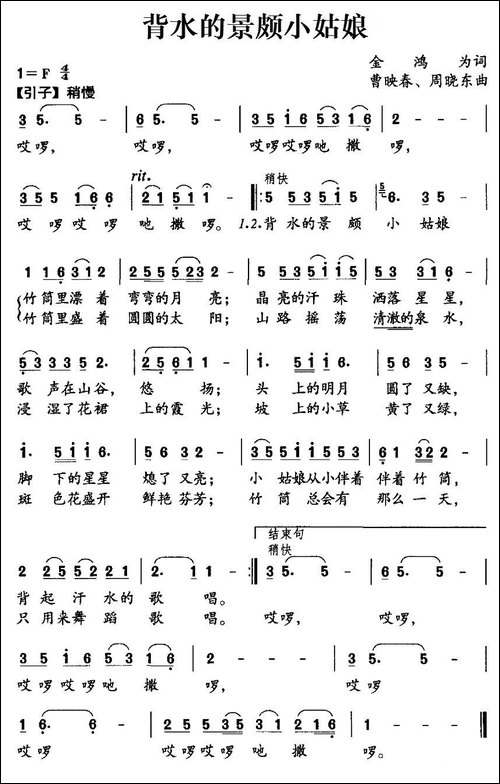 背水的景颇小姑娘
金鸿为词
1=F 4/4
曹映春、周晓东曲
【引子】稍慢
3 5. 5 - | 6 5. 5 - | 3 5 1 6 5 3 1 6 | 5 - - - |
哎啰, 哎啰, 哎啰哎啰吔撒啰,
rit.
稍快
3 5 5 1 1 6 | 2 1 5 1 1 - :5 5 3 5 5 1 5 | 6. 3 5 -
哎啰哎啰吔撒啰。1.2.背水的景颇小姑娘
1 1 1 6 3 1 2 | 2 5 5 5 5 2 3 2 - | 5 5 3 5 1 5 1 1 | 5 3 2 1 6 -
竹筒里漂着弯弯的月亮; 晶亮的汗珠洒落星星,
竹筒里盛着圆圆的太阳; 山路摇荡清澈的泉水,
5 3 3 3 3 5 2. | 2 5 6 1 1 - | 1. 5 1 1 6. | 5 6 3 5 -
歌声在山谷,悠扬; 头上的明月圆了又缺,
浸湿了花裙上的霞光; 坡上的小草黄了又绿,
1. 5 1 1 6. | 5 6 3 2 - | 3 5 5 3 5 1 6 5 3 | 6 1 3 2 2 -
脚下的星星熄了又亮; 小姑娘从小伴着伴着竹筒,
斑色花盛开鲜艳芬芳; 竹筒总会有那么一天,
结束句
稍快
2 2 5 5 2 2 1 | 2. 1 1 - :3 5. 5 - | 6 5. 5 - |
背起汗水的歌唱。
只用来舞蹈歌唱。 哎啰, 哎啰,
3 5 1 6 5 3 1 6 | 2 - - - | 1 - - - | 3 5. 5 -
哎啰哎啰吔撒啰, 哎啰
1 6. 6 - | 3 5 5 5 3 5 3 1 2 1 6 | 1 - - - | 1 - - 0
哎啰 哎啰哎啰吔撒啰。